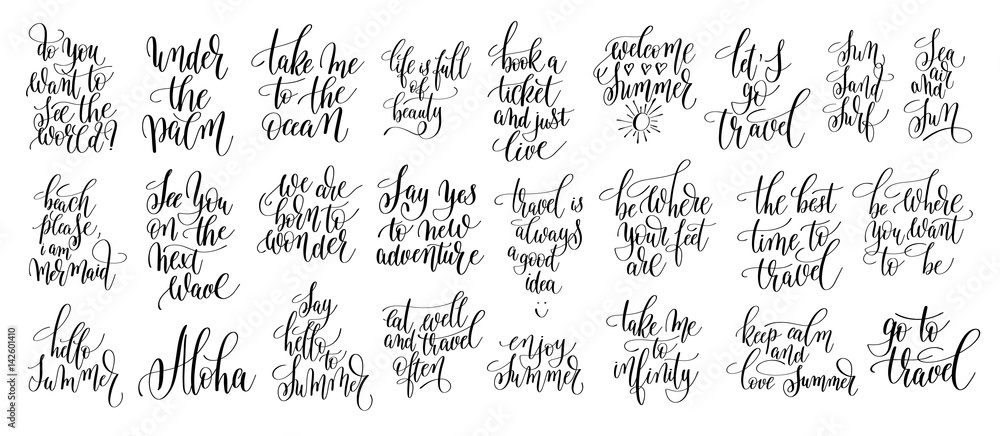 do you
want to
see the
world?
under
the
palm
take me
to the
ocean
life is full
of
beauty
book a
ticket
and just
live
welcome
summer
let's
go
travel
Sun
Sand
Surf
Sea
air
and
Sun
beach
please,
i am
mermaid
See you
on the
next
wave
we are
born to
wonder
Say yes
to new
adventure
travel is
always
a good
idea
be where
your feet
are
the best
time to
travel
be where
you want
to be
hello
Summer
Aloha
Say
hello
to
Summer
eat well
and travel
often
enjoy
Summer
take me
to
infinity
keep calm
and
love Summer
go to
travel
Adobe Stock | #142601410